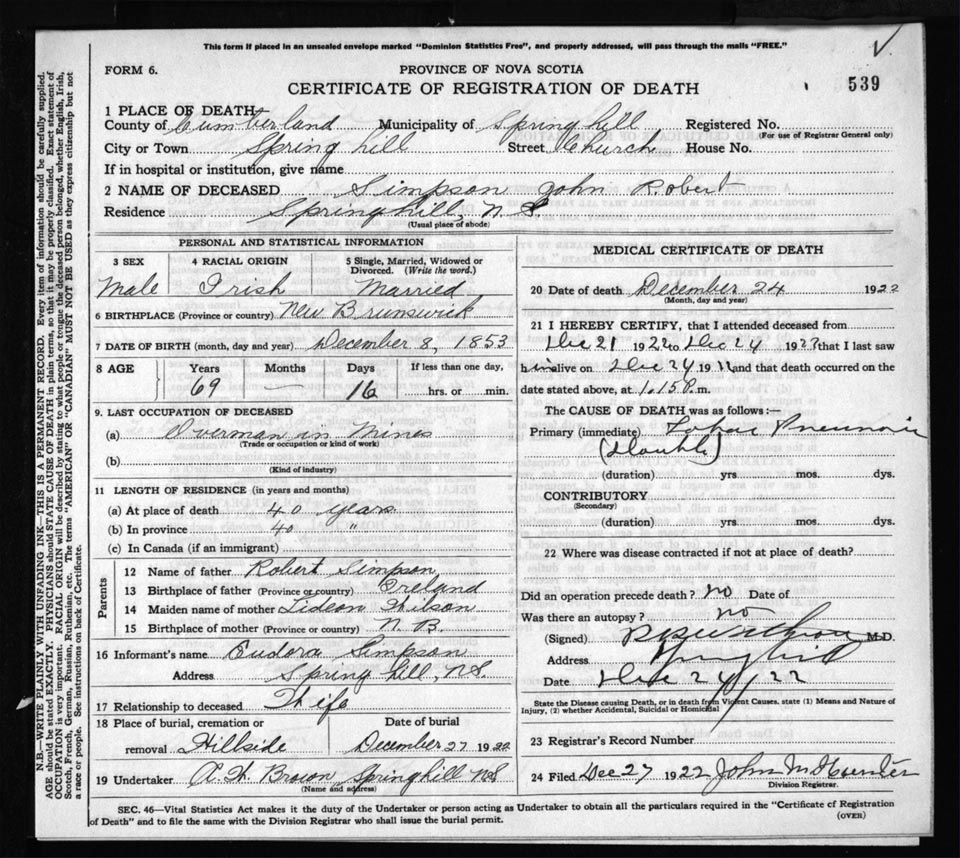 This form if placed in an unsealed envelope marked "Dominion Statistics Free", and properly addressed, will pass through the mails "FREE."
FORM 6.
PROVINCE OF NOVA SCOTIA
CERTIFICATE OF REGISTRATION OF DEATH
539
1 PLACE OF DEATH
County of Cumberland Municipality of Spring hill Registered No.
(For use of Registrar General only)
City or Town Spring hill Street Church House No.
If in hospital or institution, give name
2 NAME OF DECEASED Simpson John Robert
Residence Springhill, N.S.
(Usual place of abode)
PERSONAL AND STATISTICAL INFORMATION
3 SEX 4 RACIAL ORIGIN 5 Single, Married, Widowed or Divorced. (Write the word.)
Male Irish Married
6 BIRTHPLACE (Province or country) New Brunswick
7 DATE OF BIRTH (month, day and year) December 8, 1853
8 AGE Years Months Days If less than one day,
69 — 16 hrs. or min.
9. LAST OCCUPATION OF DECEASED
(a) Overman in Mines
(Trade or occupation or kind of work)
(b)
(Kind of industry)
11 LENGTH OF RESIDENCE (in years and months)
(a) At place of death 40 years
(b) In province 40 "
(c) In Canada (if an immigrant)
Parents
12 Name of father Robert Simpson
13 Birthplace of father (Province or country) Ireland
14 Maiden name of mother Wilson
15 Birthplace of mother (Province or country) N.B.
16 Informant's name Eudora Simpson
Address Spring hill, N.S.
17 Relationship to deceased Wife
18 Place of burial, cremation or Date of burial
removal Hillside December 27 1922
19 Undertaker Brown Springhill NS
(Name and address)
MEDICAL CERTIFICATE OF DEATH
20 Date of death December 24 1922
(Month, day and year)
21 I HEREBY CERTIFY, that I attended deceased from
Dec 21 1922 to Dec 24 1922 that I last saw
him alive on Dec 24 19 and that death occurred on the
date stated above, at 1.15 P.m.
The CAUSE OF DEATH was as follows:—
Primary (immediate) Lobar Pneumonia
(Double)
(duration) yrs. mos. dys.
CONTRIBUTORY
(Secondary)
(duration) yrs. mos. dys.
22 Where was disease contracted if not at place of death?
Did an operation precede death? no Date of
Was there an autopsy? no
(Signed) M.D.
Address Springhill
Date Dec 24/22
State the Disease causing Death, or in death from Violent Causes, state (1) Means and Nature of
Injury, (2) whether Accidental, Suicidal or Homicidal
23 Registrar's Record Number
24 Filed Dec 27 1922 John M Hunter
Division Registrar.
SEC. 46—Vital Statistics Act makes it the duty of the Undertaker or person acting as Undertaker to obtain all the particulars required in the "Certificate of Registration
of Death" and to file the same with the Division Registrar who shall issue the burial permit.
(OVER)
N.B.—WRITE PLAINLY WITH UNFADING INK—THIS IS A PERMANENT RECORD. Every item of information should be carefully supplied.
AGE should be stated EXACTLY. PHYSICIANS should STATE CAUSE OF DEATH in plain terms, so that it may be properly classified. Exact statement of
OCCUPATION is very important. RACIAL ORIGIN will be described by stating to what people or tongue the deceased person belonged, whether English, Irish,
Scotch, French, German, Russian, Ruthenian, etc. The terms "AMERICAN" OR "CANADIAN" MUST NOT BE USED as they express citizenship but not
a race or people. See instructions on back of Certificate.